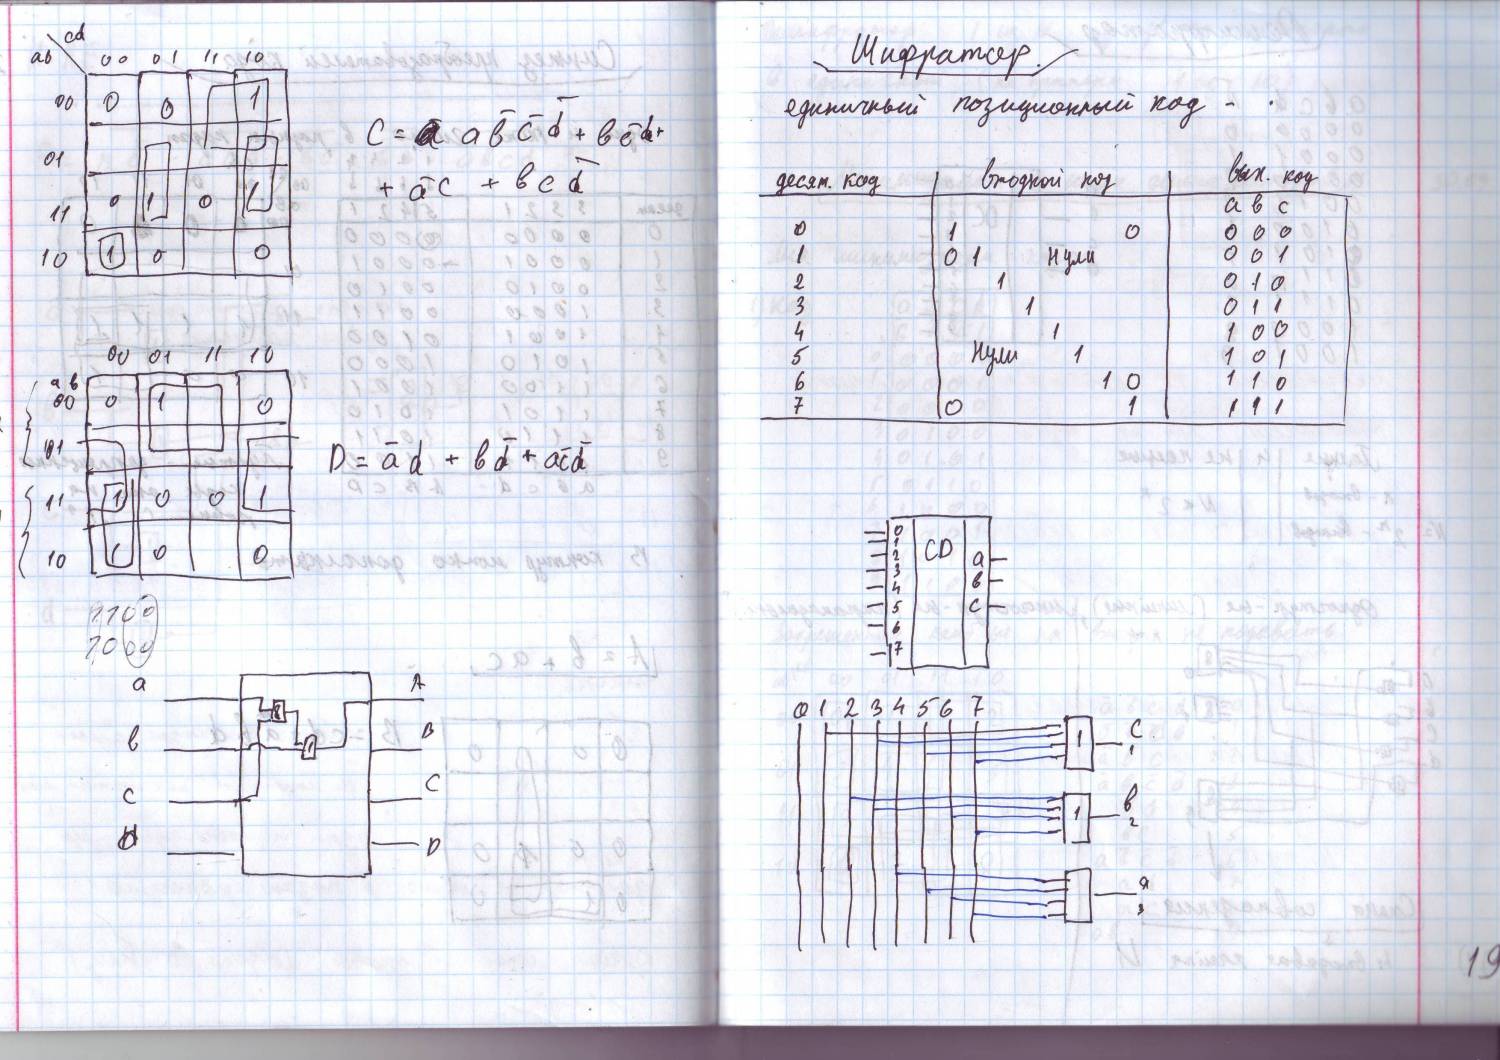 cd
ab 00 01 11 10
00 0 0 1
01
11 0 1 0 1
10 1 0 0
C = a b̄ c̄ d̄ + b c̄ d +
+ ā c + b c d̄
00 01 11 10
ab
00 0 1 0
01
11 1 0 0 1
10 1 0 0
D = ā d + b d̄ + a c̄ d̄
1100
1000
a A
в 1 B
c C
D
Шифратор.
единичный позиционный код - .
десят. код входной код вых. код
а в с
0 1 0 0 0 0
1 0 1 Нули 0 0 1
2 1 0 1 0
3 1 0 1 1
4 1 1 0 0
5 Нули 1 1 0 1
6 1 0 1 1 0
7 0 1 1 1 1
0
1
2 CD
3 a
4 в
5 c
6
7
0 1 2 3 4 5 6 7
1 C
1
1 в
2
а
3
19